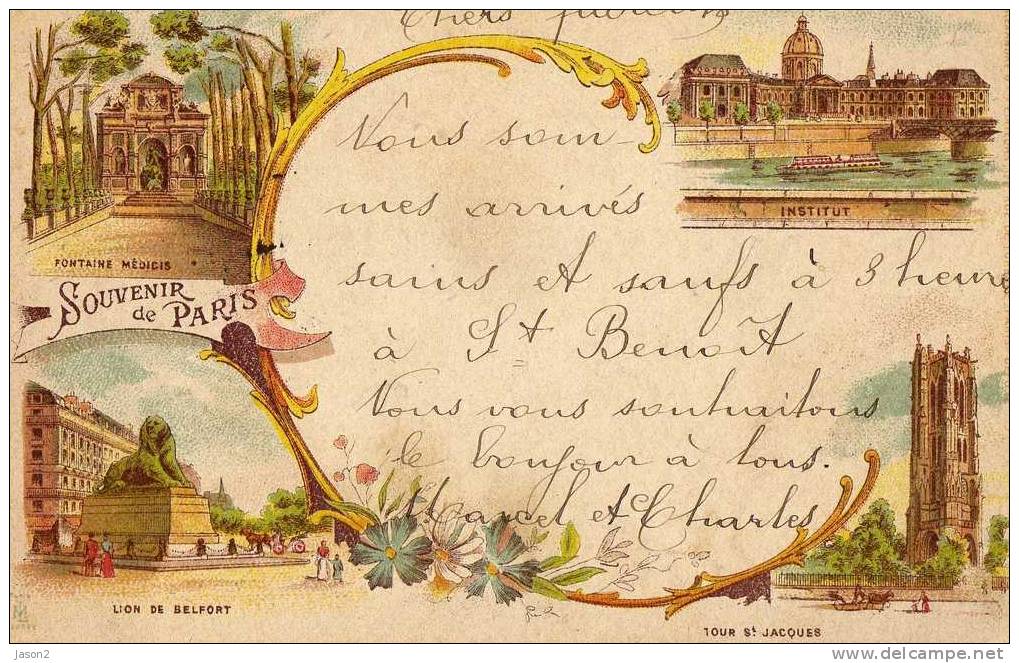 Nous som-
mes arrivés
sains et saufs à 3 heures
à St Benoit
Nous vous souhaitons
le bonjour à tous.
Marcel et Charles
FONTAINE MÉDICIS
INSTITUT
SOUVENIR
de PARIS
LION DE BELFORT
TOUR St JACQUES
Jason2
delcampe.net